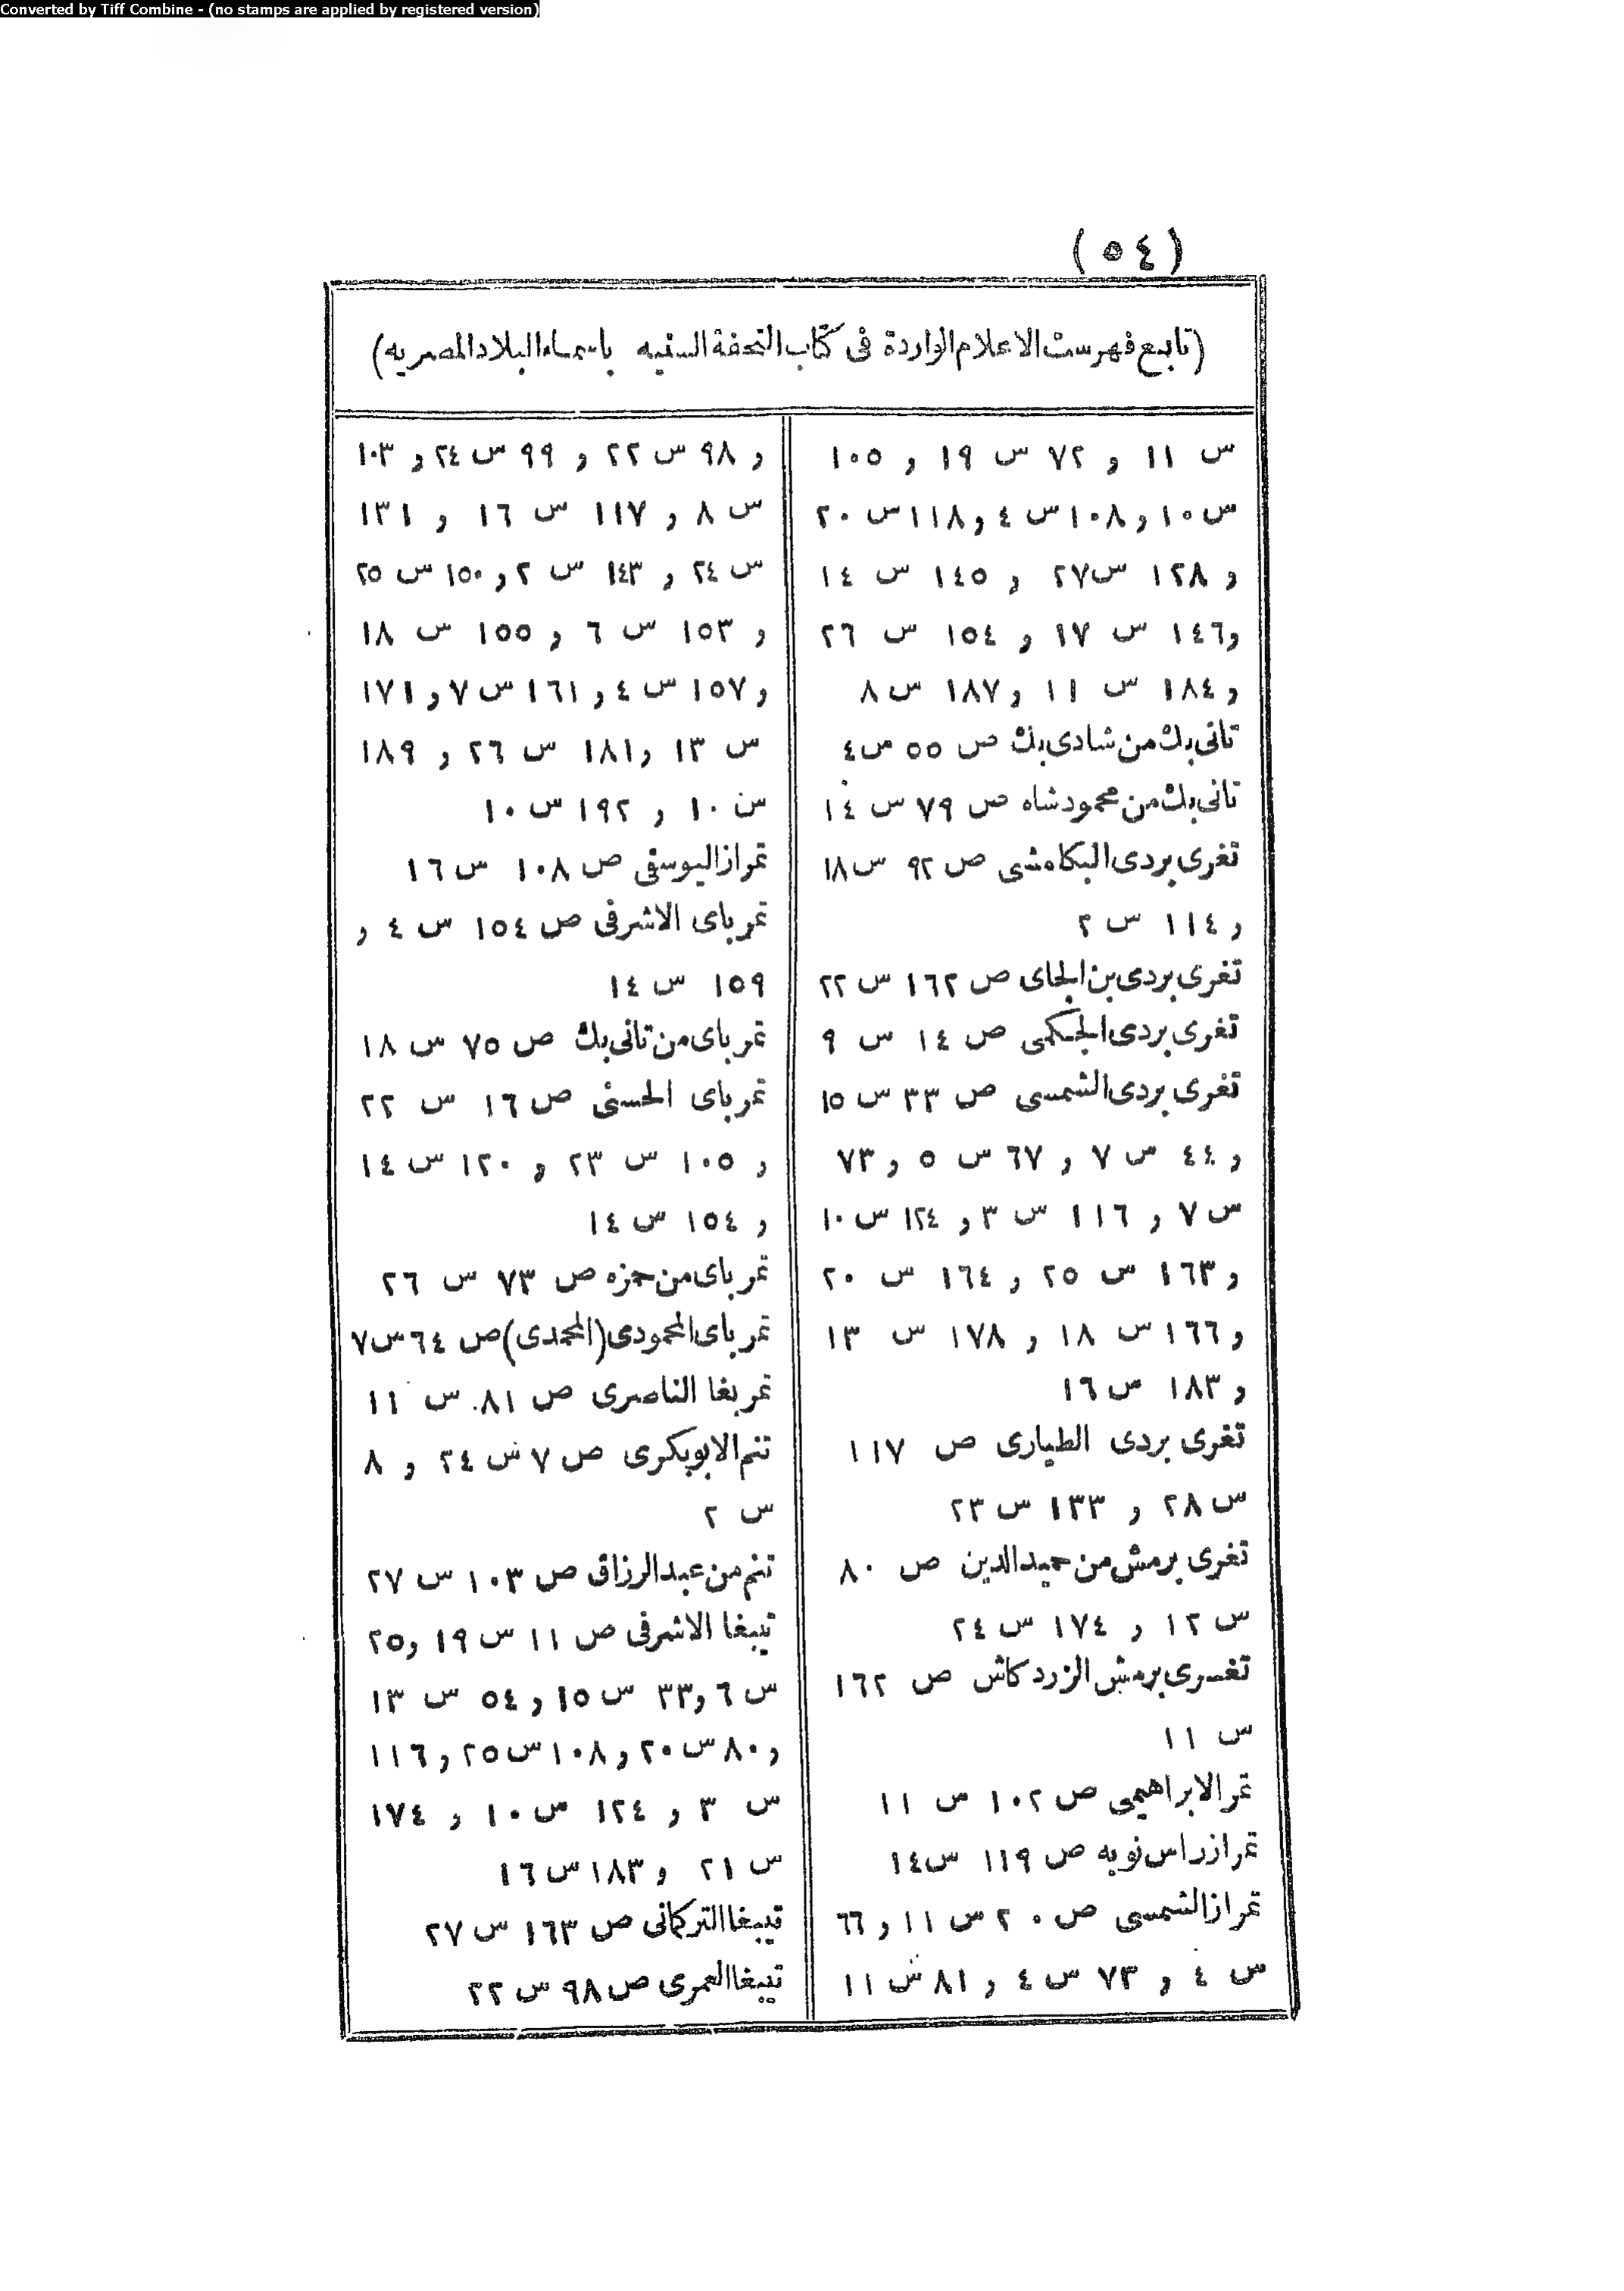 Converted by Tiff Combine - (no stamps are applied by registered version)
(٥٤)
(تابع فهرست الاعلام الواردة فى كتاب التحفة السنيه باسماء البلاد المصريه)
س ١١ و ٧٢ س ١٩ و ١٠٥
س ١٠ و ١٠٨ س ٤ و ١١٨ س ٢٠
و ١٢٨ س ٢٧ و ١٤٥ س ١٤
و ١٤٦ س ١٧ و ١٥٤ س ٢٦
و ١٨٤ س ١١ و ١٨٧ س ٨
تانى بك من شادى بك ص ٥٥ س ٤
تانى بك من محمود شاه ص ٧٩ س ١٤
تغرى بردى البكلمشى ص ٩٢ س ١٨
و ١١٤ س ٢
تغرى بردى بن الجاى ص ١٦٢ س ٢٢
تغرى بردى الجكمى ص ١٤ س ٩
تغرى بردى الشمسى ص ٣٣ س ١٥
و ٤٤ س ٧ و ٦٧ س ٥ و ٧٣
س ٧ و ١١٦ س ٣ و ١٢٤ س ١٠
و ١٦٣ س ٢٥ و ١٦٤ س ٢٠
و ١٦٦ س ١٨ و ١٧٨ س ١٣
و ١٨٣ س ١٦
تغرى بردى الطيارى ص ١١٧
س ٢٨ و ١٣٣ س ٢٣
تغرى برمش من حميد الدين ص ٨٠
س ١٢ و ١٧٤ س ٢٤
تغرى برمش الزردكاش ص ١٦٢
س ١١
تمر الابراهيمى ص ١٠٢ س ١١
تمراز راس نوبه ص ١١٩ س ١٤
تمراز الشمسى ص ٢٠ س ١١ و ٦٦
س ٤ و ٧٣ س ٤ و ٨١ س ١١
و ٩٨ س ٢٢ و ٩٩ س ٢٤ و ١٠٣
س ٨ و ١١٧ س ١٦ و ١٣١
س ٢٤ و ١٤٣ س ٢ و ١٥٠ س ٢٥
و ١٥٣ س ٦ و ١٥٥ س ١٨
و ١٥٧ س ٤ و ١٦١ س ٧ و ١٧١
س ١٣ و ١٨١ س ٢٦ و ١٨٩
س ١٠ و ١٩٢ س ١٠
تمراز اليوسفى ص ١٠٨ س ١٦
تمر باى الاشرفى ص ١٥٤ س ٤ و
١٥٩ س ١٤
تمر باى من تانى بك ص ٧٥ س ١٨
تمر باى الحسنى ص ١٦ س ٢٢
و ١٠٥ س ٢٣ و ١٢٠ س ١٤
و ١٥٤ س ١٤
تمر باى من حمزه ص ٧٣ س ٢٦
تمر باى المحمودى (المحمدى) ص ٦٤ س ٧
تمر بغا الناصرى ص ٨١ س ١١
تنم الابوبكرى ص ٧ س ٢٤ و ٨
س ٢
تنم من عبد الرزاق ص ١٠٣ س ٢٧
تيبغا الاشرفى ص ١١ س ١٩ و ٢٥
س ٦ و ٣٣ س ١٥ و ٥٤ س ١٣
و ٨٠ س ٢٠ و ١٠٨ س ٢٥ و ١١٦
س ٣ و ١٢٤ س ١٠ و ١٧٤
س ٢١ و ١٨٣ س ١٦
تيبغا التركمانى ص ١٦٣ س ٢٧
تيبغا العمرى ص ٩٨ س ٢٢